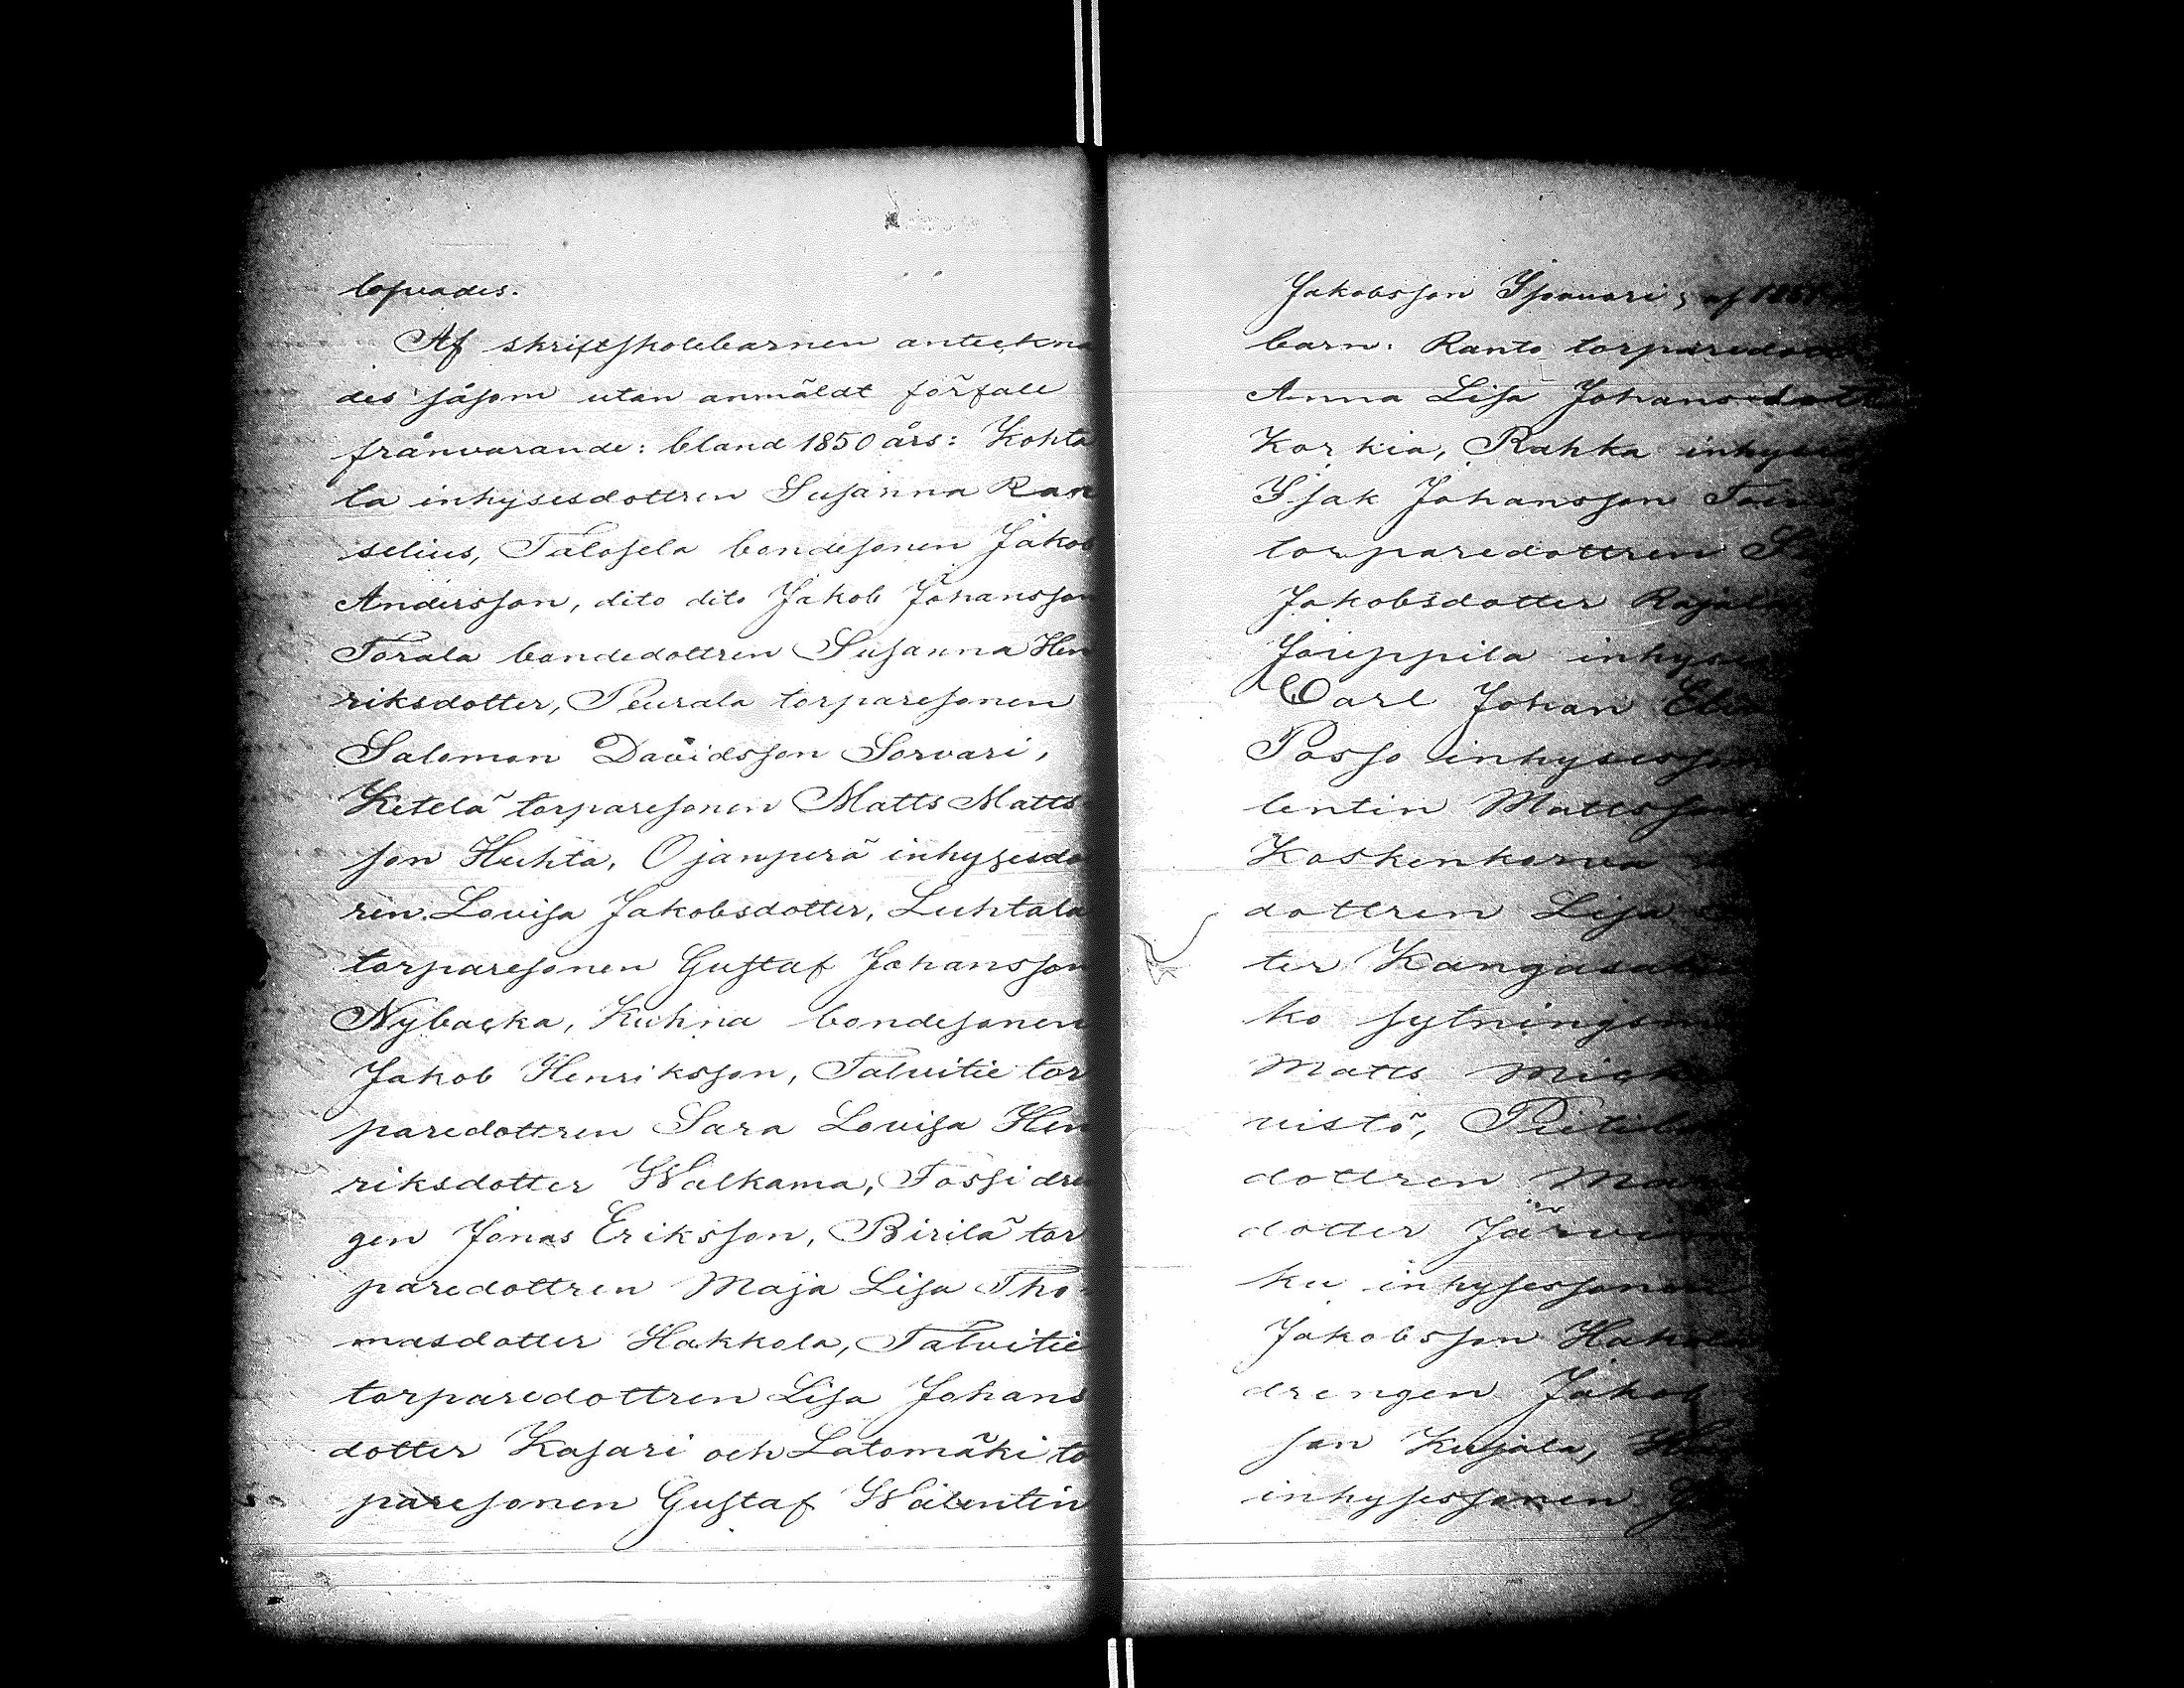 lopvades.
Af skriftskolebarnen anteckna
des såsom utan anmäldt förfall
frånvarande: bland 1850 års: Kohta
la inhysesdottren Susanna Ran
selius, Talosela bondesonen Jakob
Andersson, dito dito Jakob Johansson
Torala bondedottren Susanna Hen
riksdotter, Peurala torparesonen
Salomon Davidsson Sorvari,
Ketelä torparesonen Matts Matts
son Huhta, Ojanperä inhysesdo
ren Lovisa Jakobsdotter, Luhtala
torparesonen Gustaf Johansson
Nybacka, Kuhna bondesonen
Jakob Henriksson, Talvitie tor
paredottren Sara Lovisa Hen
riksdotter Walkama, Tossi dre
gen Jonas Eriksson, Birilä tor
paredottren Maja Lisa Tho
masdotter Hakkola, Talvitie
torparedottren Lisa Johans
dotter Kasari och Latomäki to
paresonen Gustaf Walentin
Jakobsson Isonari; af 1851
barn: Ranto torparedott
Anna Lisa Johansdott
Korkia, Rahka inhyses
Isak Johansson
torparedottren
Jakobsdotter Rajala
Jouppila inhyses
Carl Johan
Posso inhysesson
lentin Mattsson
Koskenkorva
dottren Lisa
ter
ko sytningsm
Matts Mick
vistö,
dottren
dotter Järvi
ku inhysessonen
Jakobsson
drengen Jakob
son Kujala,
inhysessonen